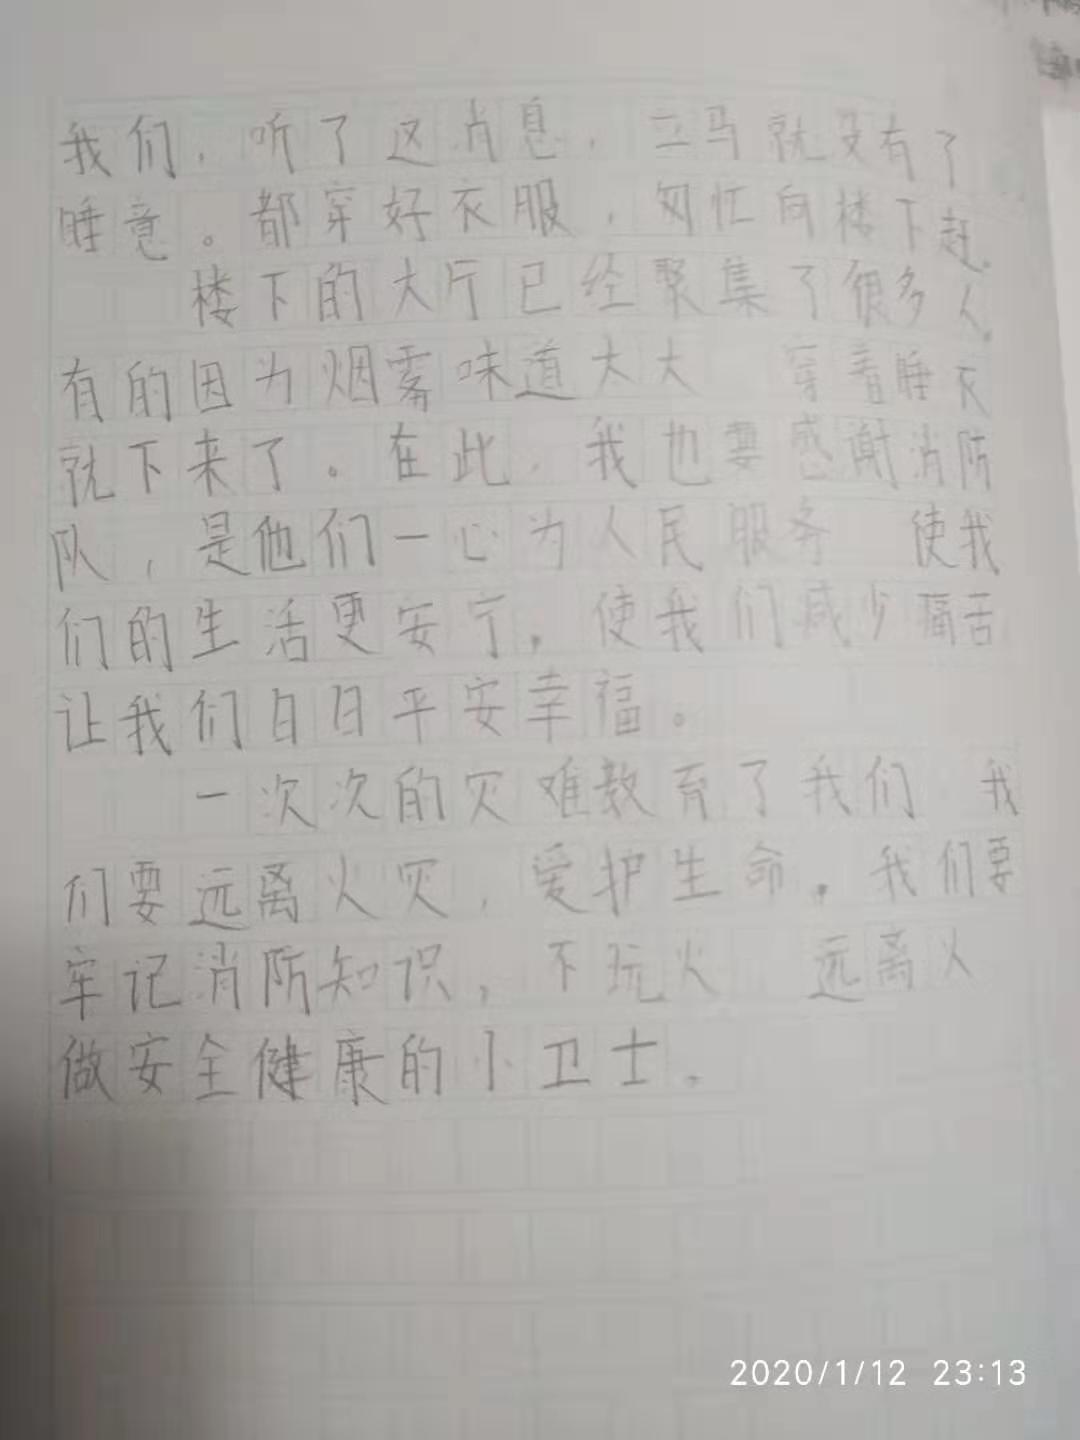 我们，听了这消息，立马就没有了
睡意。都穿好衣服，匆忙向楼下赶。
楼下的大厅已经聚集了很多人。
有的因为烟雾味道太大 穿着睡衣
就下来了。在此，我也要感谢消防
队，是他们一心为人民服务 使我
们的生活更安宁，使我们减少痛苦
让我们日日平安幸福。
一次次的灾难教育了我们 我
们要远离火灾，爱护生命。我们要
牢记消防知识，不玩火 远离火
做安全健康的小卫士。
2020/1/12 23:13